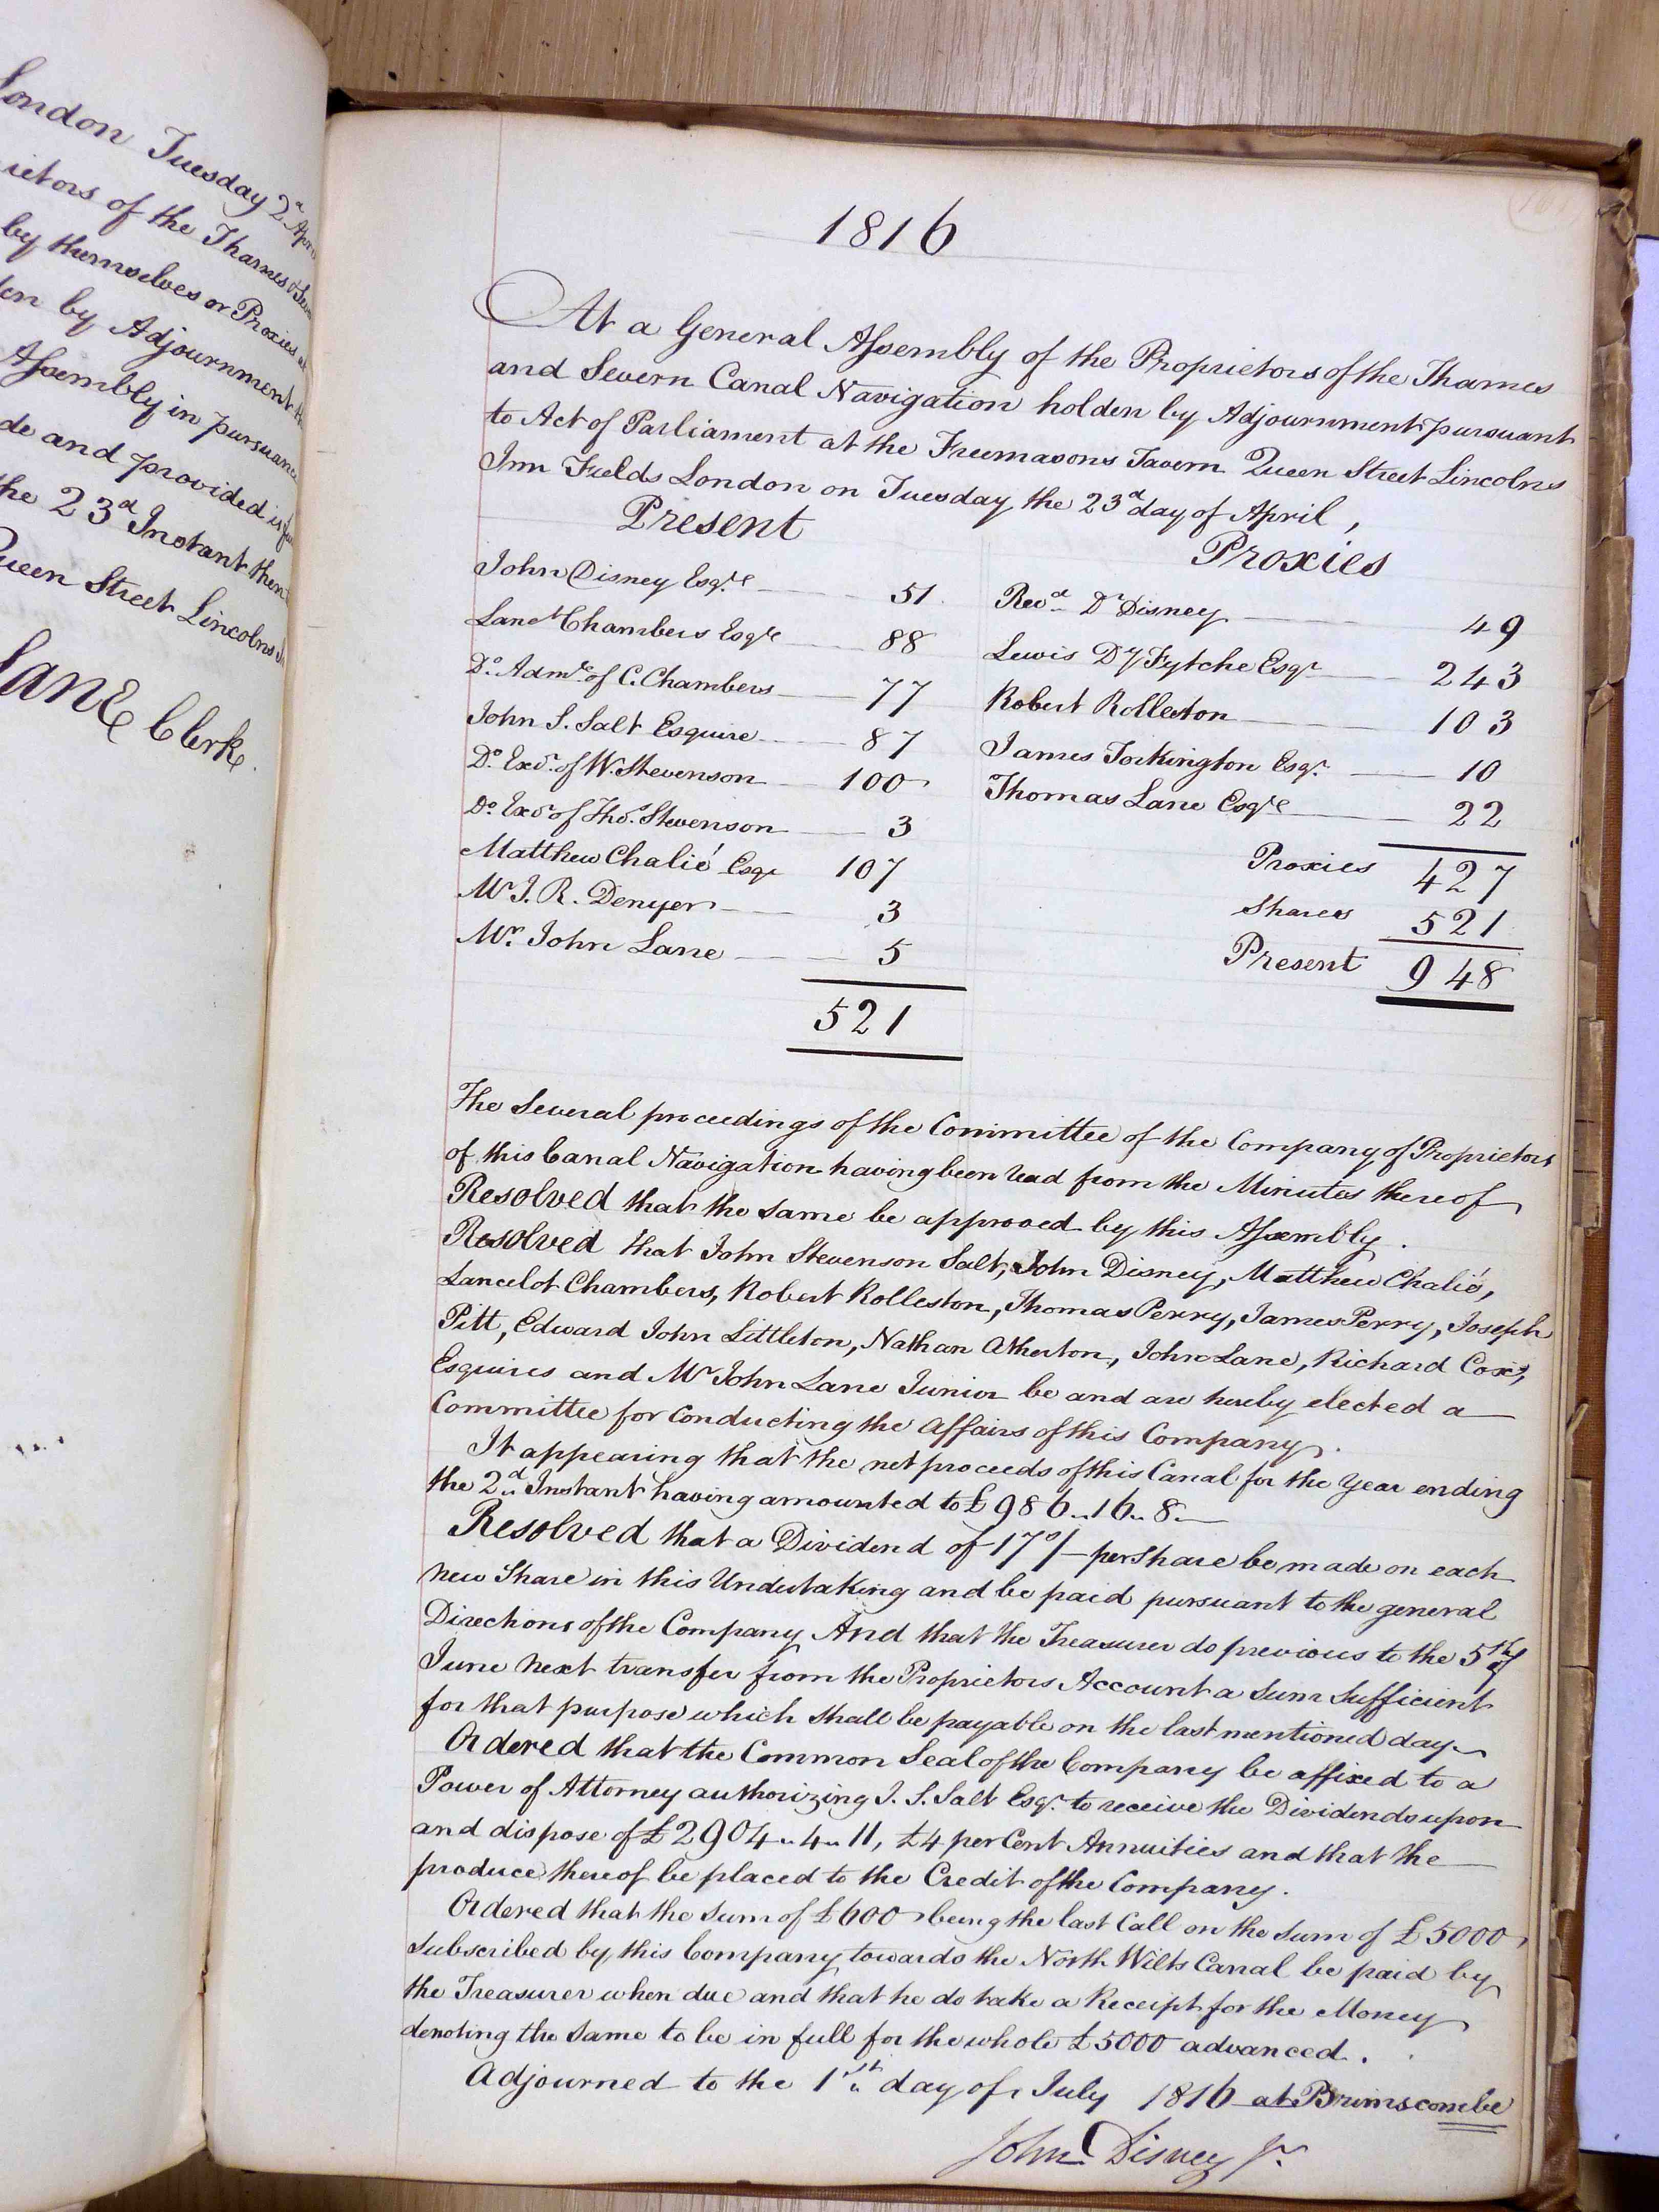 London Tuesday 2d Apr
ietors of the Thames &
by themselves or Proxies at
en by Adjournment
Assembly in pursuance
de and provided is
he 23d Instant then
Queen Street Lincolns
Lane Clerk.
1816
At a General Assembly of the Proprietors of the Thames
and Severn Canal Navigation holden by Adjournment pursuant
to Act of Parliament at the Freemasons Tavern Queen Street Lincolns
Inn Fields London on Tuesday the 23d day of April,
Present
John Disney Esqre 51
Lanct Chambers Esqre 88
Do. Admr. of C. Chambers 77
John S. Salt Esquire 87
Do. Exor. of W. Stevenson 100
Do. Exor of Thos. Stevenson 3
Matthew Chalié Esqr 107
Mr J. R. Denyer 3
Mr. John Lane 5
521
Proxies
Revd Dr Disney 49
Lewis Dy Fytche Esqr 243
Robert Rolleston 103
James Torkington Esqr. 10
Thomas Lane Esqre 22
Proxies 427
Shares 521
Present 948
The Several proceedings of the Committee of the Company of Proprietors
of this Canal Navigation having been read from the Minutes thereof
Resolved that the same be approved by this Assembly.
Resolved that John Stevenson Salt, John Disney, Matthew Chalié,
Lancelot Chambers, Robert Rolleston, Thomas Perry, James Perry, Joseph
Pitt, Edward John Littleton, Nathan Atherton, John Lane, Richard Coxe,
Esquires and Mr John Lane Junior be and are hereby elected a
Committee for conducting the affairs of this Company.
It appearing that the net proceeds of this Canal for the year ending
the 2d Instant having amounted to £986..16..8.
Resolved that a Dividend of 17s/- per Share be made on each
new Share in this Undertaking and be paid pursuant to the general
Directions of the Company And that the Treasurer do previous to the 5th of
June next transfer from the Proprietors Account a Sum Sufficient
for that purpose which shall be payable on the last mentioned day
Ordered that the Common Seal of the Company be affixed to a
Power of Attorney authorizing J. S. Salt Esqr. to receive the Dividends upon
and dispose of £2904..4..11, £4 per Cent Annuities and that the
produce thereof be placed to the Credit of the Company.
Ordered that the Sum of £600 being the last Call on the Sum of £5000,
Subscribed by this Company towards the North Wilts Canal be paid by
the Treasurer when due and that he do take a Receipt for the Money
denoting the same to be in full for the whole £5000 advanced.
Adjourned to the 1st day of July 1816 at Brimscombe
John Disney Jr.